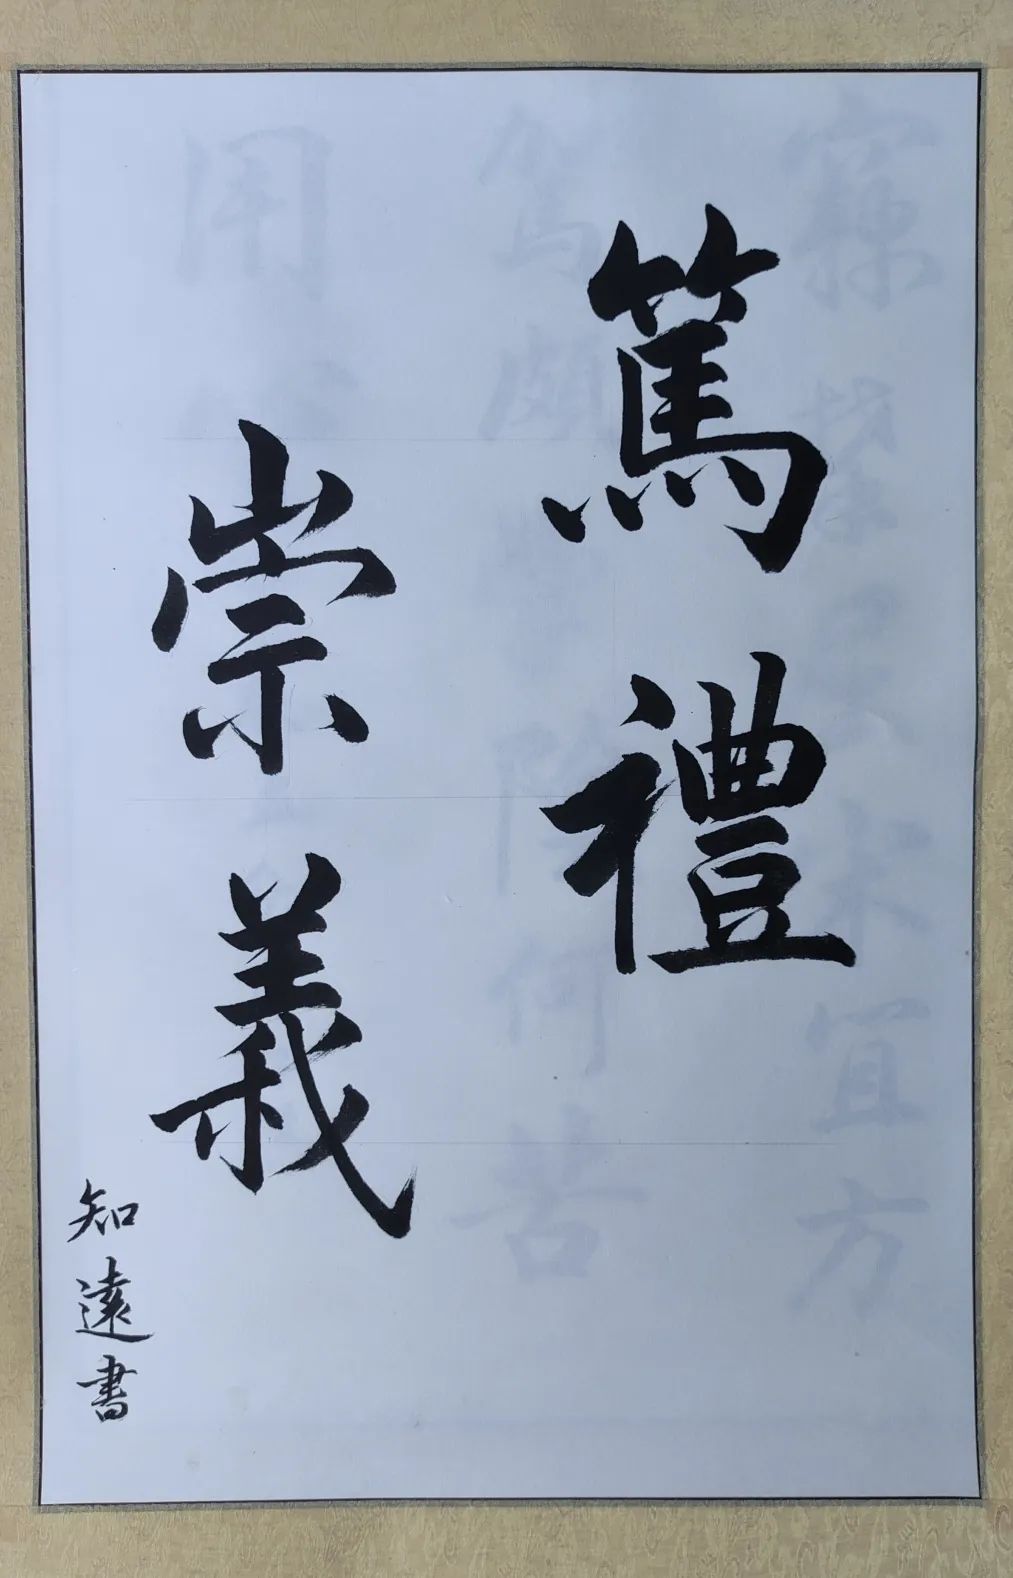 篤禮
崇義
知遠書